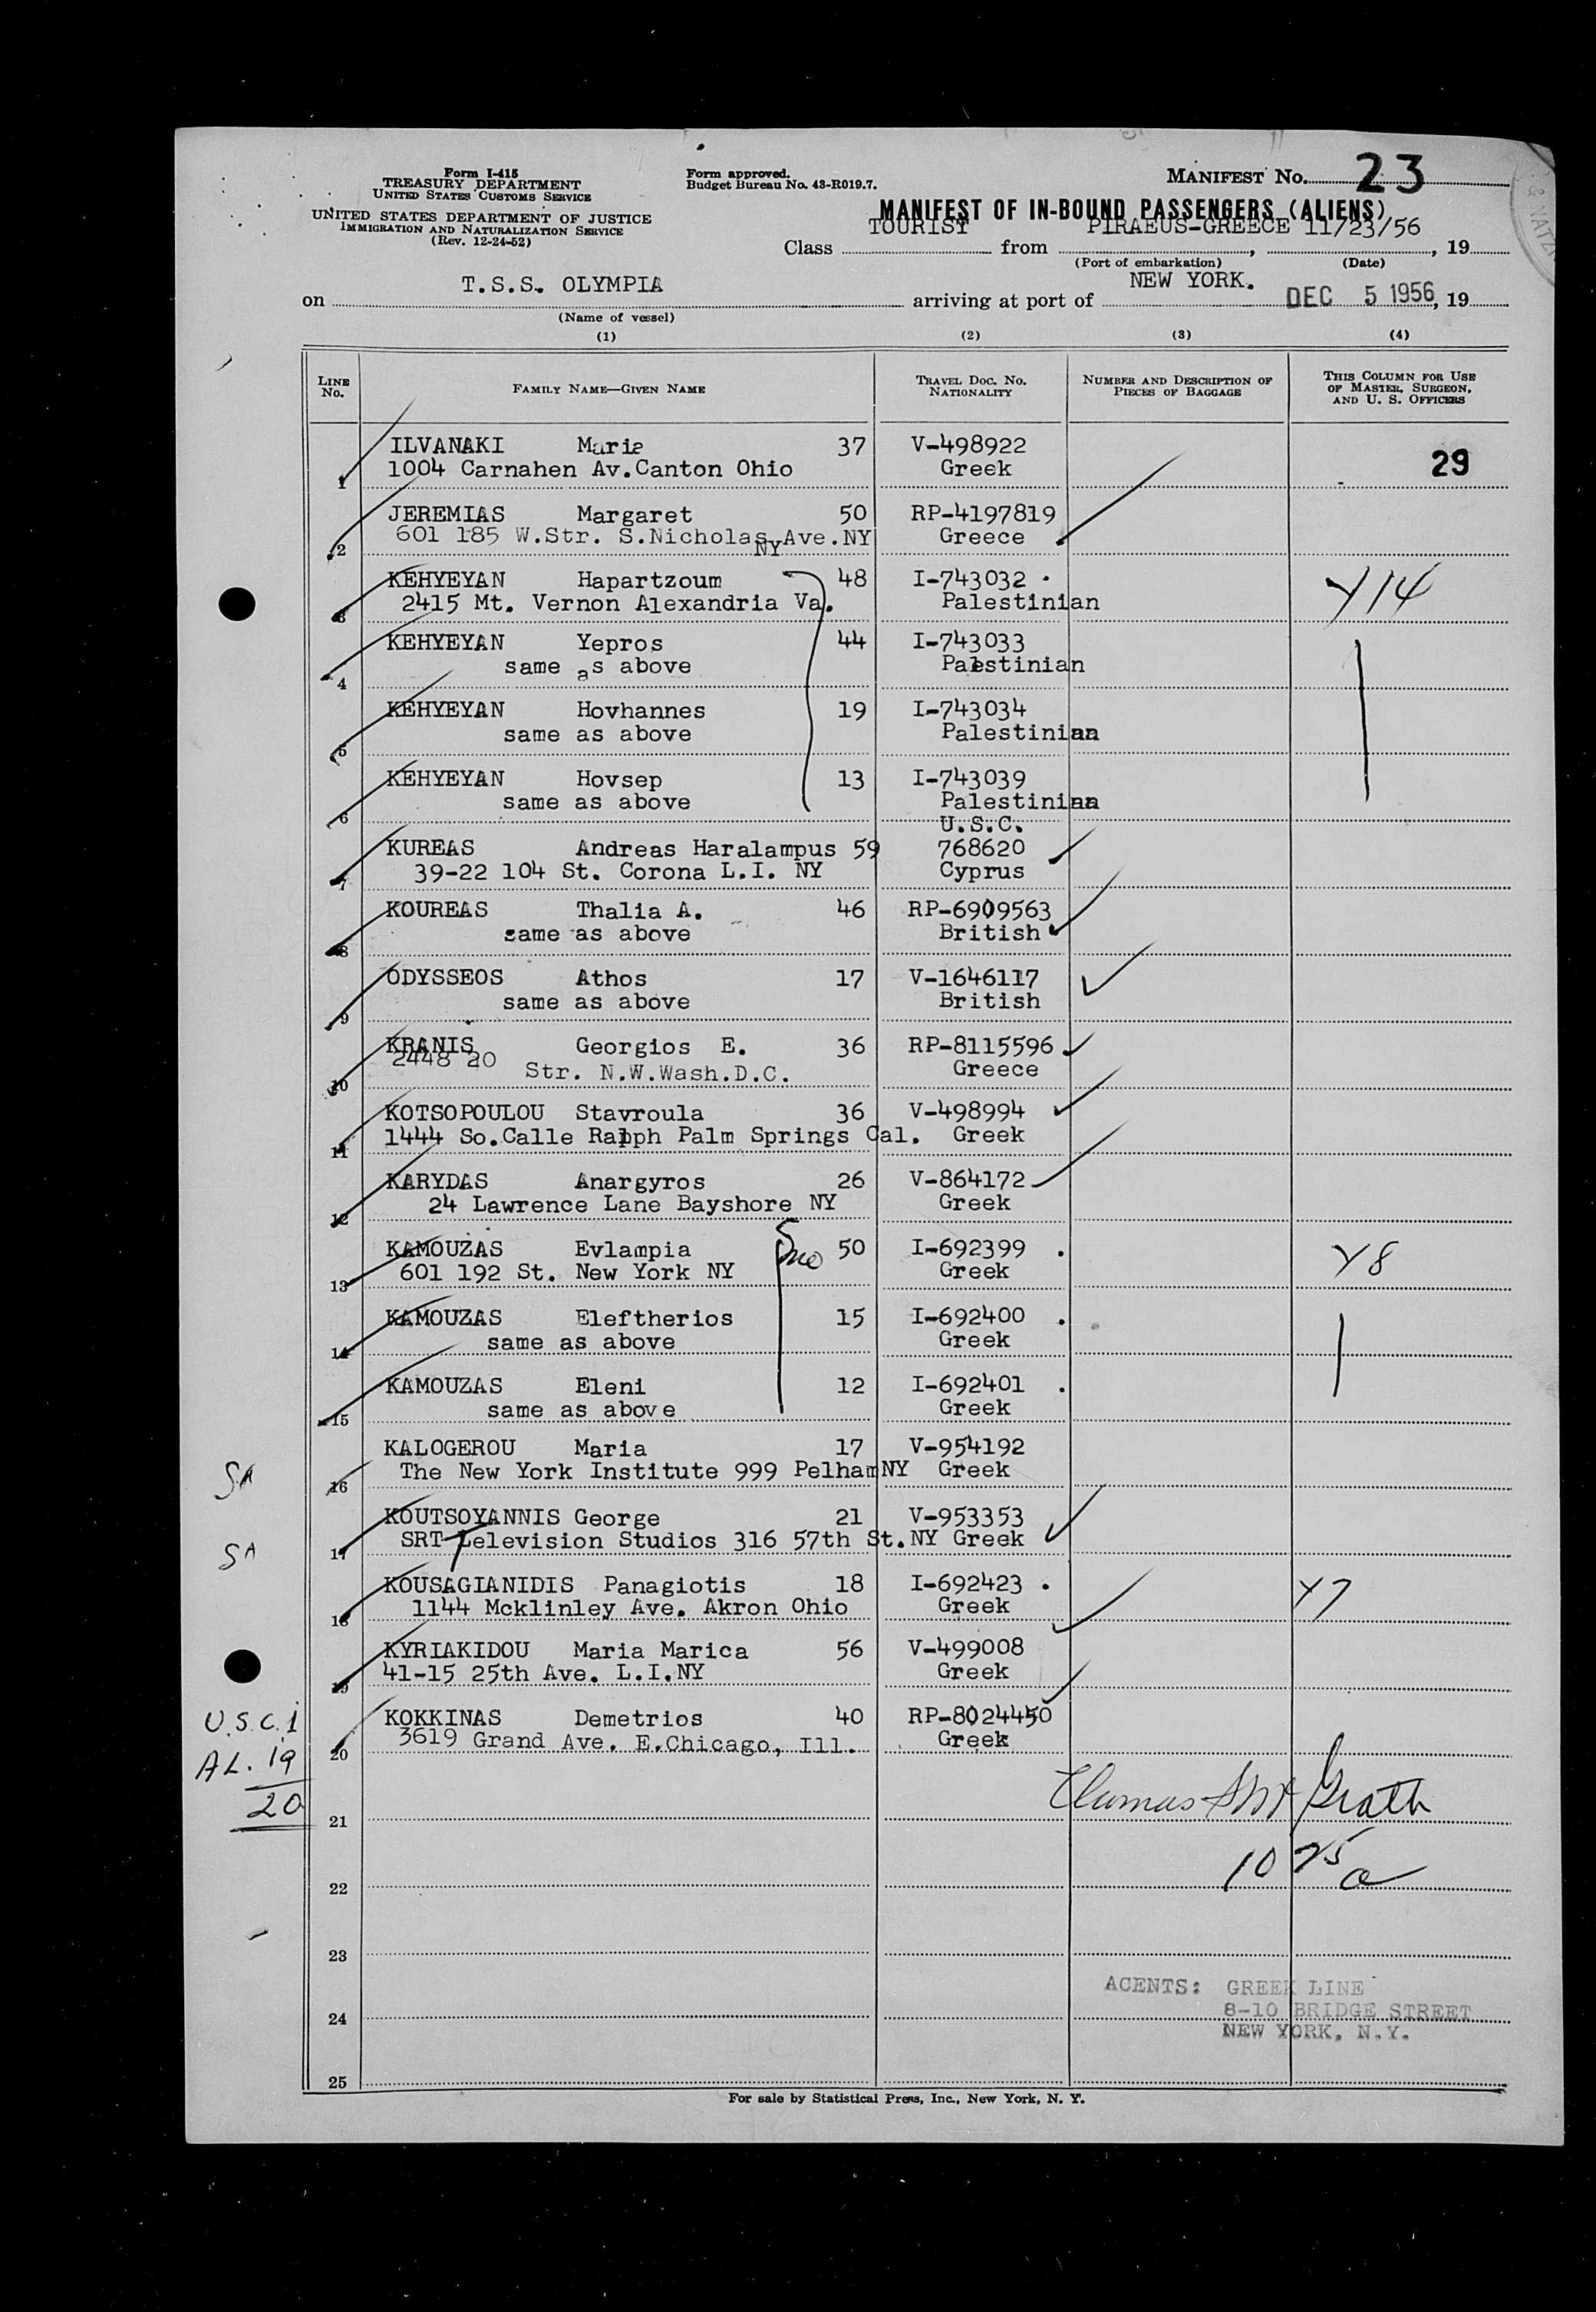 Form I-415
TREASURY DEPARTMENT
UNITED STATES CUSTOMS SERVICE
UNITED STATES DEPARTMENT OF JUSTICE
IMMIGRATION AND NATURALIZATION SERVICE
(Rev. 12-24-52)
Form approved.
Budget Bureau No. 43-R019.7.
MANIFEST No. 23
MANIFEST OF IN-BOUND PASSENGERS (ALIENS)
Class TOURIST from PIRAEUS-GREECE 11/23/56, 19
(Port of embarkation) (Date)
on T.S.S. OLYMPIA arriving at port of NEW YORK. DEC 5 1956, 19
(Name of vessel)
(1) (2) (3) (4)
LINE No. FAMILY NAME—GIVEN NAME TRAVEL DOC. No. NATIONALITY NUMBER AND DESCRIPTION OF PIECES OF BAGGAGE THIS COLUMN FOR USE OF MASTER, SURGEON, AND U. S. OFFICERS
ILVANAKI Maria 37 V-498922
1 1004 Carnahen Av.Canton Ohio Greek 29
JEREMIAS Margaret 50 RP-4197819
2 601 185 W.Str. S.Nicholas Ave.NY Greece
NY
KEHYEYAN Hapartzoum 48 I-743032
3 2415 Mt. Vernon Alexandria Va. Palestinian Y14
KEHYEYAN Yepros 44 I-743033
4 same as above Palestinian
KEHYEYAN Hovhannes 19 I-743034
5 same as above Palestinian
KEHYEYAN Hovsep 13 I-743039
6 same as above Palestinian
U.S.C.
KUREAS Andreas Haralampus 59 768620
7 39-22 104 St. Corona L.I. NY Cyprus
KOUREAS Thalia A. 46 RP-6909563
8 same as above British
ODYSSEOS Athos 17 V-1646117
9 same as above British
KRANIS Georgios E. 36 RP-8115596
10 2448 20 Str. N.W.Wash.D.C. Greece
KOTSOPOULOU Stavroula 36 V-498994
11 1444 So.Calle Ralph Palm Springs Cal. Greek
KARYDAS Anargyros 26 V-864172
12 24 Lawrence Lane Bayshore NY Greek
KAMOUZAS Evlampia 50 I-692399
13 601 192 St. New York NY Greek Y8
KAMOUZAS Eleftherios 15 I-692400
14 same as above Greek
KAMOUZAS Eleni 12 I-692401
15 same as above Greek
KALOGEROU Maria 17 V-954192
SA 16 The New York Institute 999 Pelham NY Greek
KOUTSOYANNIS George 21 V-953353
SA 17 SRT Television Studios 316 57th St.NY Greek
KOUSAGIANIDIS Panagiotis 18 I-692423
18 1144 Mcklinley Ave. Akron Ohio Greek Y7
KYRIAKIDOU Maria Marica 56 V-499008
19 41-15 25th Ave. L.I.NY Greek
U.S.C. 1 KOKKINAS Demetrios 40 RP-8024450
20 3619 Grand Ave. E.Chicago, Ill. Greek
AL. 19
20
21 Thomas McGrath
22 10 25 a
23
AGENTS: GREEK LINE
24 8-10 BRIDGE STREET
NEW YORK, N.Y.
25
For sale by Statistical Press, Inc., New York, N. Y.